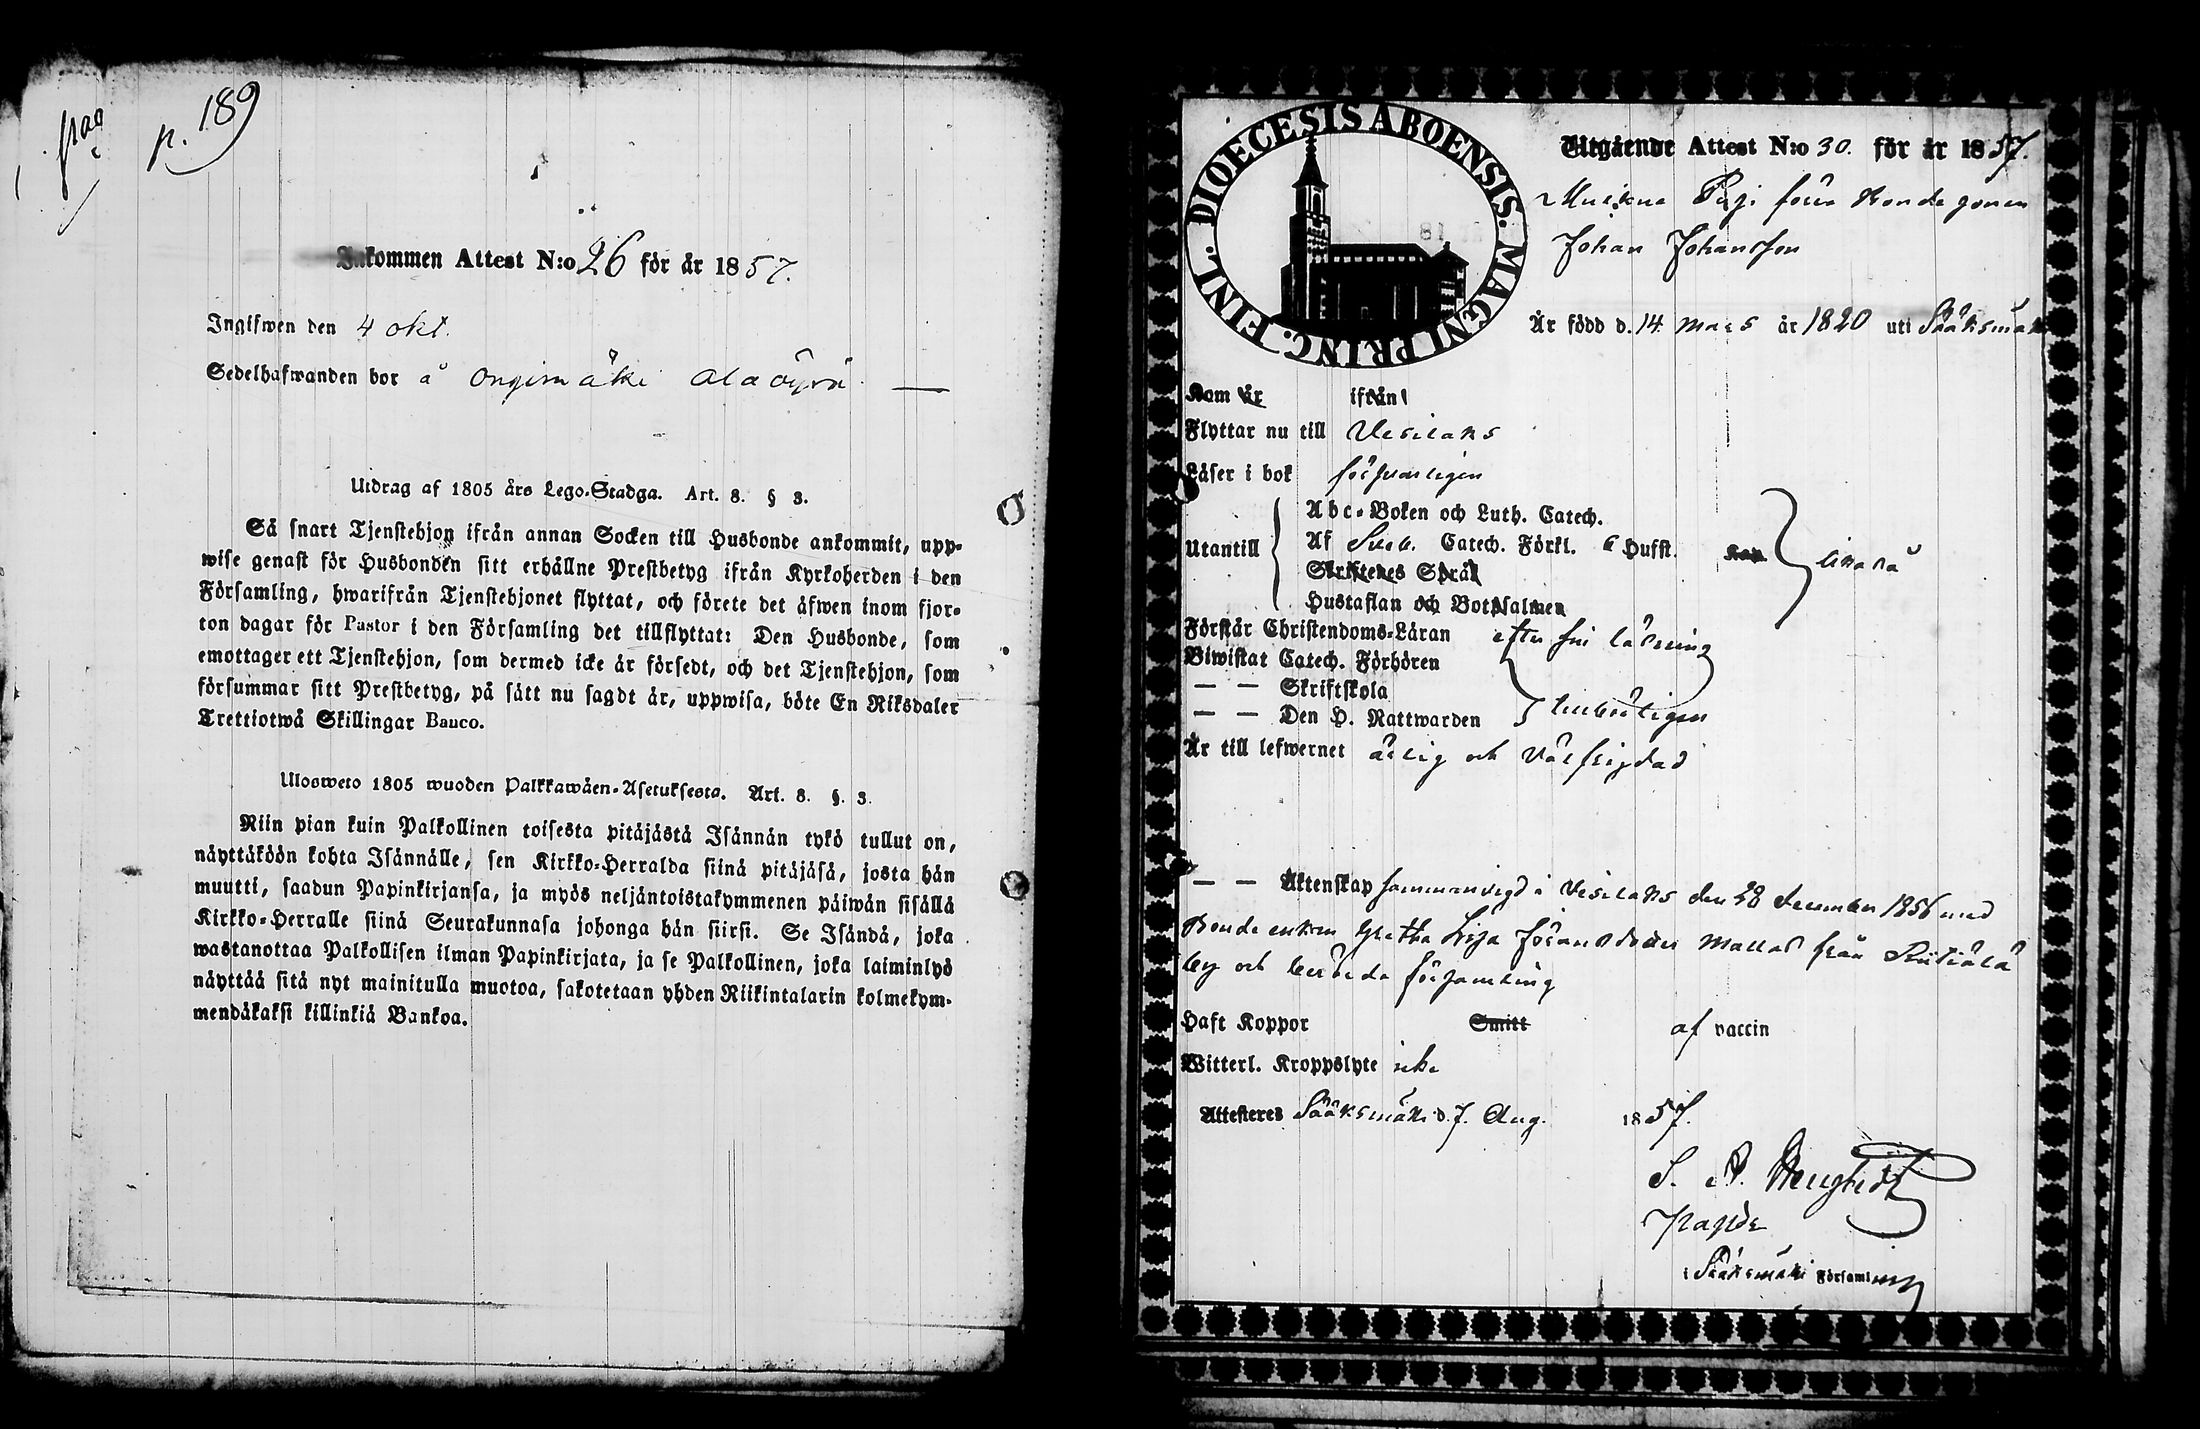 p. 189
Inkommen Attest N:o 26 för år 1857.
Ingifwen den 4 okt.
Sedelhafwanden bor å Ongimäki Alaöyrä
Utdrag af 1805 års Lego-Stadga. Art. 8. § 3.
Så snart Tjenstehjon ifrån annan Socken till Husbonde ankommit, upp-
wise genast för Husbonden sitt erhållne Prestbetyg ifrån Kyrkoherden i den
Församling, hwarifrån Tjenstehjonet flyttat, och förete det äfwen inom fjor-
ton dagar för Pastor i den Församling det tillflyttat: Den Husbonde, som
emottager ett Tjenstehjon, som dermed icke är försedt, och det Tjenstehjon, som
försummar sitt Prestbetyg, på sätt nu sagdt är, uppwisa, böte En Riksdaler
Trettiotwå Skillingar Banco.
Ulosweto 1805 wuoden Palkkawäen-Asetuksesta. Art. 8. §. 3.
Niin pian kuin Palkollinen toisesta pitäjästä Isännän tykö tullut on,
näyttäköön kohta Isännälle, sen Kirkko-Herralda siinä pitäjäsä, josta hän
muutti, saadun Papinkirjansa, ja myös neljäntoistakymmenen päiwän sisällä
Kirkko-Herralle siinä Seurakunnasa johonga hän siirsi. Se Isändä, joka
wastanottaa Palkollisen ilman Papinkirjata, ja se Palkollinen, joka laiminlyö
näyttää sitä nyt mainitulla muotoa, sakotetaan yhden Riikintalarin kolmekym-
mendäkaksi killinkiä Bankoa.
DIOECESIS ABOENSIS. MAGNI PRINC. FINL.
Utgående Attest N:o 30. för år 1857.
Johan Johansson
Är född d. 14 mars år 1820 uti Sääksmäki
Kom år ifrån
Flyttar nu till Vesilaks
Läser i bok försvarligen
Utantill
Abc-Boken och Luth. Catech.
Af Sveb. Catech. Förkl. 6 Hufst. Kap
Skriftenes Språk
Hustaflan och Botpsalmen
lika så
Förstår Christendoms-Läran efter sin läsning
Biwistat Catech. Förhören
— — Skriftskola
— — Den H. Nattwarden
Är till lefwernet ärlig och välfrejdad
— — Äktenskap sammanvigd i Vesilaks den 28 december 1856 med
Bonde enkan Gretha Lisa Johansdotter Mattas från
by och berörde församling
Haft Koppor Smitt af vaccin
Witterl. Kroppslyte icke
Attesteres Sääksmäki d. 7. Aug. 1857.
i Sääksmäki Församling